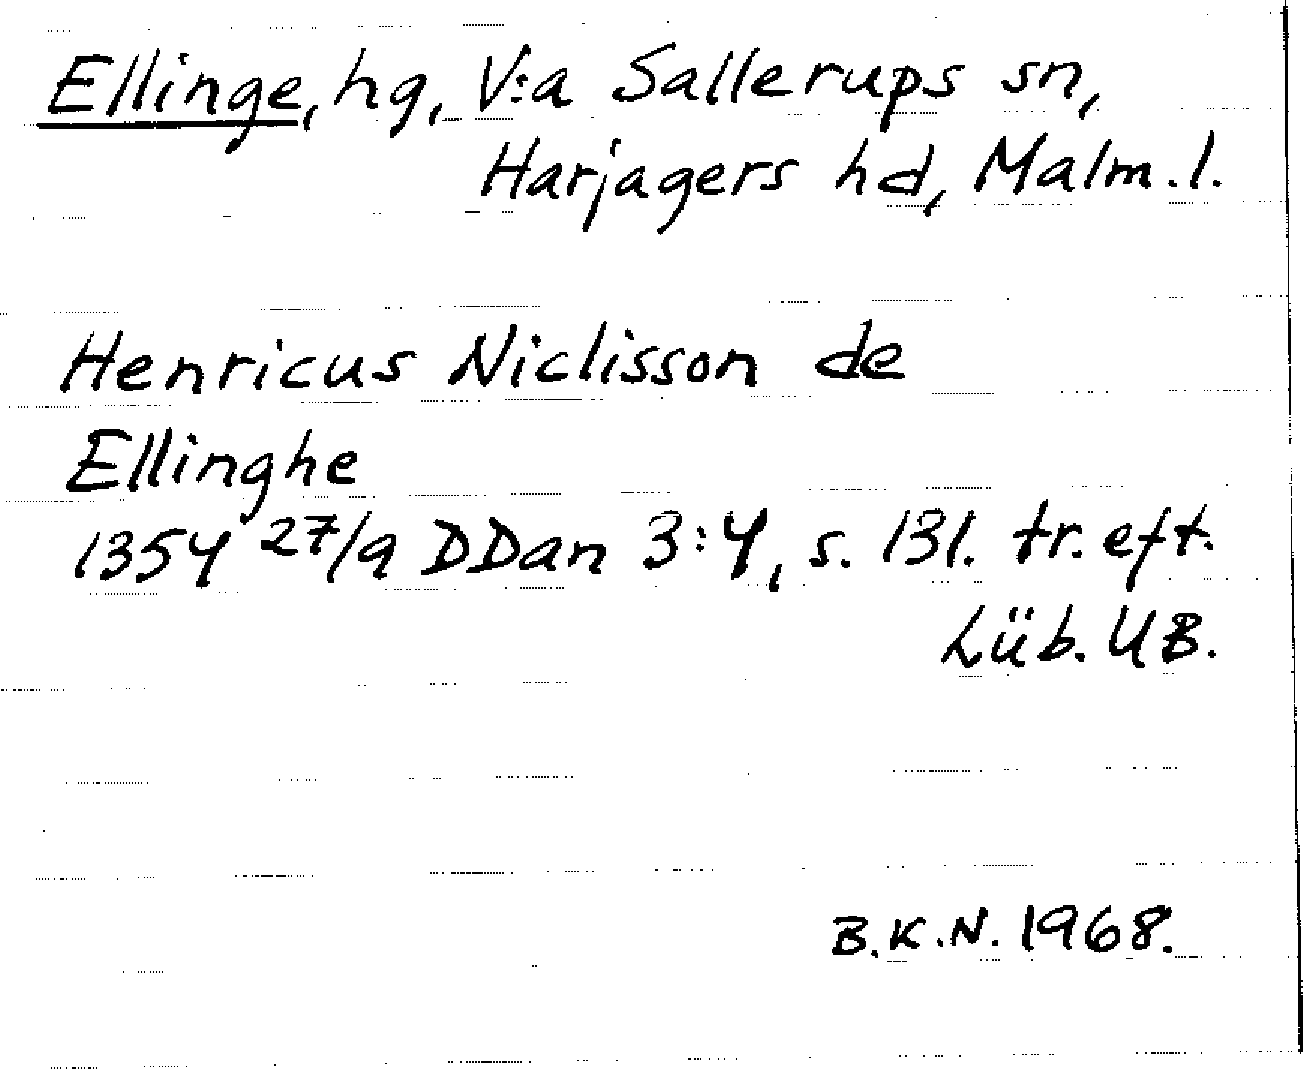 Ellinge, hg, V:a Sallerups sn,
Harjagers hd, Malm.l.
Henricus Niclisson de
Ellinghe
1354 27/9 DDan 3:4, s. 131. tr. eft.
Lüb. UB.
B.K.N. 1968.